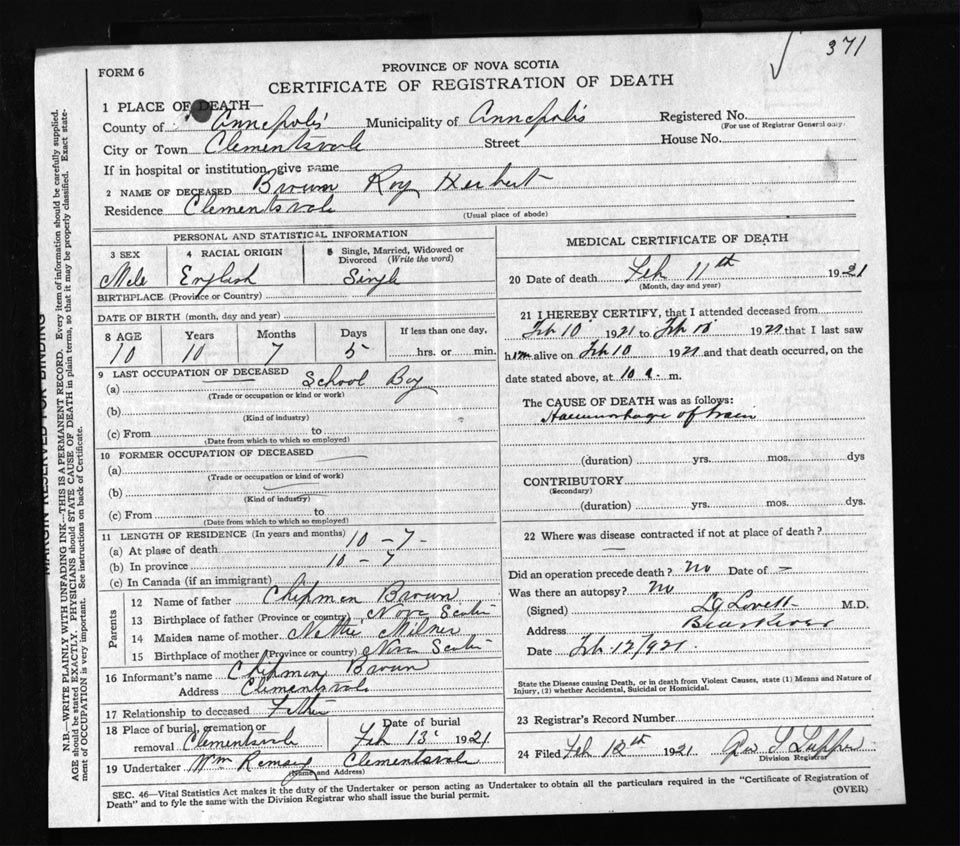 371
FORM 6
PROVINCE OF NOVA SCOTIA
CERTIFICATE OF REGISTRATION OF DEATH
1 PLACE OF DEATH—
County of Annapolis Municipality of Annapolis Registered No.
(For use of Registrar General only.
City or Town Clementsvale Street House No.
If in hospital or institution, give name
2 NAME OF DECEASED Brown Roy Herbert
Residence Clementsvale
(Usual place of abode)
PERSONAL AND STATISTICAL INFORMATION
3 SEX 4 RACIAL ORIGIN 5 Single, Married, Widowed or
Divorced (Write the word)
Male English Single
BIRTHPLACE (Province or Country)
DATE OF BIRTH (month, day and year)
8 AGE Years Months Days If less than one day,
10 10 7 5 hrs. or min.
9 LAST OCCUPATION OF DECEASED
(a) School Boy
(Trade or occupation or kind or work)
(b)
(Kind of industry)
(c) From to
(Date from which to which so employed)
10 FORMER OCCUPATION OF DECEASED
(a)
(Trade or occupation or kind of work)
(b)
(Kind of industry)
(c) From to
(Date from which to which so employed)
11 LENGTH OF RESIDENCE (In years and months)
(a) At place of death 10 - 7 -
(b) In province 10 - 7
(c) In Canada (if an immigrant)
Parents
12 Name of father Chipman Brown
13 Birthplace of father (Province or country) Nova Scotia
14 Maiden name of mother Nettie Milner
15 Birthplace of mother (Province or country) Nova Scotia
16 Informant's name Chipman Brown
Address Clementsvale
17 Relationship to deceased Father
18 Place of burial, cremation or Date of burial
removal Clementsvale Feb 13 1921
19 Undertaker Wm Ramsay Clementsvale
(Name and Address)
MEDICAL CERTIFICATE OF DEATH
20 Date of death Feb 11th 1921
(Month, day and year)
21 I HEREBY CERTIFY, that I attended deceased from
Feb 10 1921 to Feb 10 1921 that I last saw
him alive on Feb 10 1921 and that death occurred, on the
date stated above, at 10 a. m.
The CAUSE OF DEATH was as follows:
Haemorrhage of brain
(duration) yrs. mos. dys
CONTRIBUTORY
(Secondary)
(duration) yrs. mos. dys.
22 Where was disease contracted if not at place of death?
Did an operation precede death? No Date of —
Was there an autopsy? No
(Signed) L G Lovett M.D.
Address Bear River
Date Feb 12/921.
State the Disease causing Death, or in death from Violent Causes, state (1) Means and Nature of
Injury, (2) whether Accidental, Suicidal or Homicidal.
23 Registrar's Record Number
24 Filed Feb 12th 1921 Tupper
Division Registrar
SEC. 46—Vital Statistics Act makes it the duty of the Undertaker or person acting as Undertaker to obtain all the particulars required in the "Certificate of Registration of
Death" and to fyle the same with the Division Registrar who shall issue the burial permit.
(OVER)
MARGIN RESERVED FOR BINDING
N.B.—WRITE PLAINLY WITH UNFADING INK—THIS IS A PERMANENT RECORD. Every item of information should be carefully supplied.
AGE should be stated EXACTLY. PHYSICIANS should STATE CAUSE OF DEATH in plain terms, so that it may be properly classified. Exact state-
ment of OCCUPATION is very important. See instructions on back of Certificate.